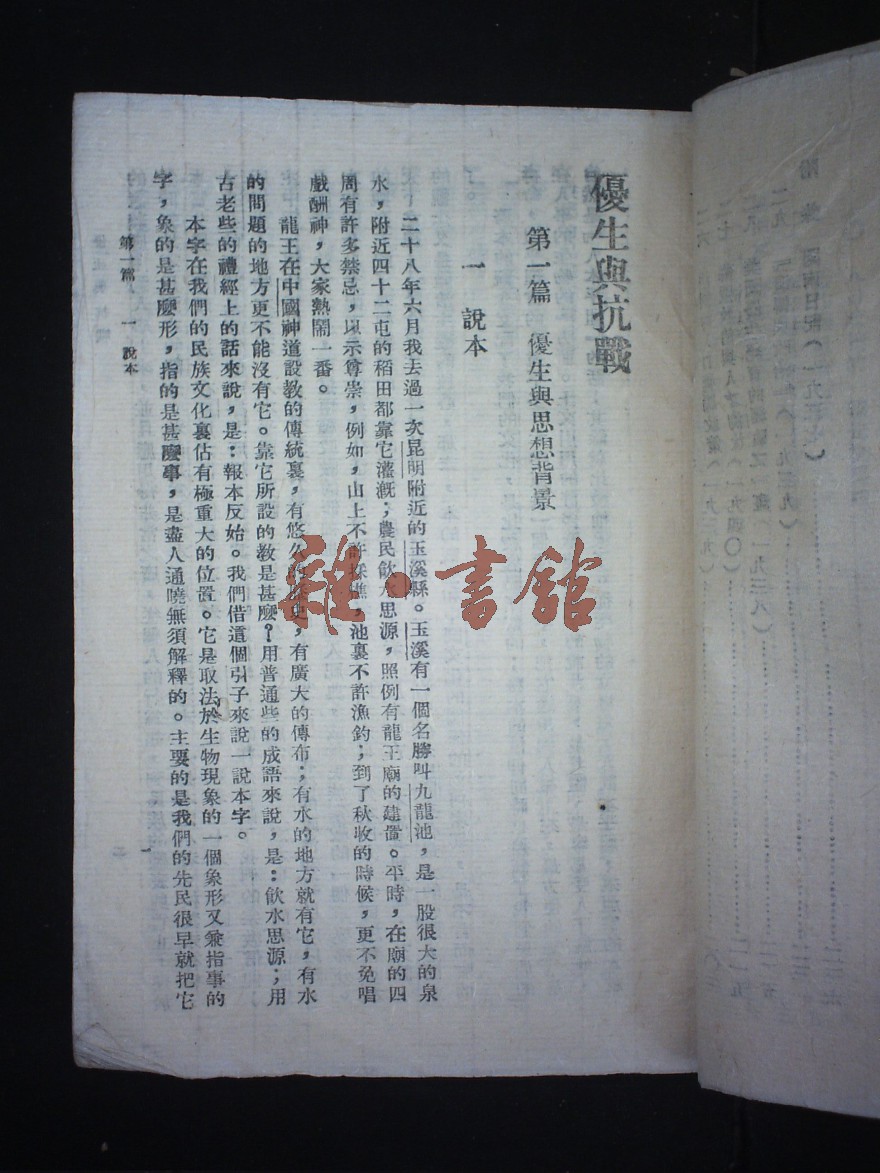 優生與抗戰
第一篇　優生與思想背景
一　說本
二十八年六月我去過一次昆明附近的玉溪縣。玉溪有一個名勝叫九龍池，是一股很大的泉
水，附近四十二屯的稻田都靠它灌漑；農民飮水思源，照例有龍王廟的建置。平時，在廟的四
周有許多禁忌，以示尊崇，例如，山上不許採樵，池裏不許漁釣；到了秋收的時候，更不免唱
戲酬神，大家熱鬧一番。
龍王在中國神道設教的傳統裏，有悠久的歷史，有廣大的傳布；有水的地方就有它，有水
的問題的地方更不能沒有它。靠它所設的教是甚麼？用普通些的成語來說，是：飮水思源；用
古老些的禮經上的話來說，是：報本反始。我們借這個引子來說一說本字。
本字在我們的民族文化裏佔有極重大的位置。它是取法於生物現象的一個象形又兼指事的
字，象的是甚麼形，指的是甚麼事，是盡人通曉無須解釋的。主要的是我們的先民很早就把它
第一篇　一　說本
一
雜·書館
附　錄